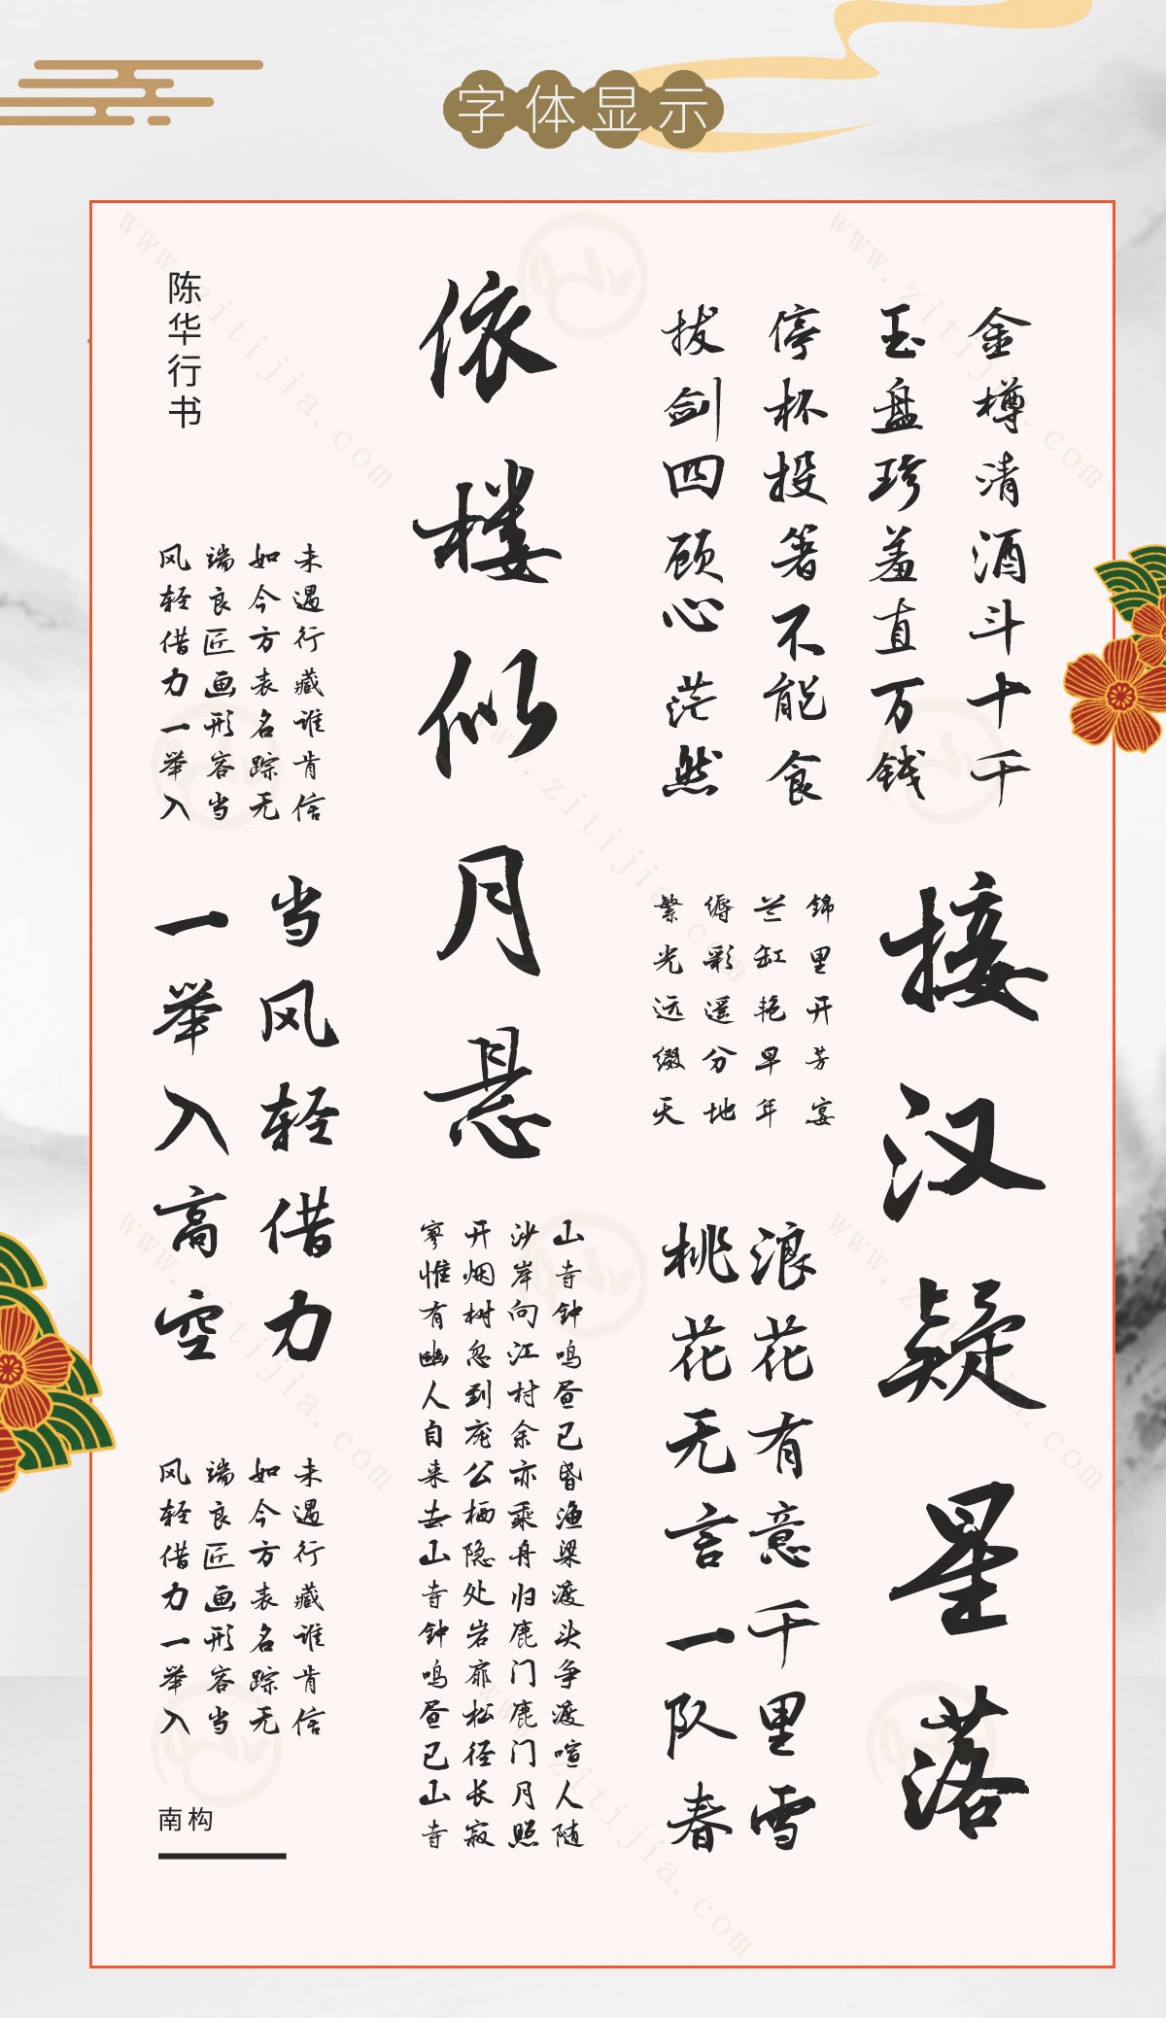 字体显示
金樽清酒斗十千
玉盘珍羞直万钱
停杯投箸不能食
拔剑四顾心茫然
接汉疑星落
依楼似月悬
锦里开芳宴
兰缸艳早年
缛彩遥分地
繁光远缀天
浪花有意千里雪
桃花无言一队春
山寺钟鸣昼已昏渔梁渡头争渡喧人随
沙岸向江村余亦乘舟归鹿门鹿门月照
开烟树忽到庞公栖隐处岩扉松径长寂
寥惟有幽人自来去山寺钟鸣昼已山寺
陈华行书
未遇行藏谁肯信
如今方表名踪无
端良匠画形容当
风轻借力一举入
当风轻借力
一举入高空
未遇行藏谁肯信
如今方表名踪无
端良匠画形容当
风轻借力一举入
南构
www.zitijia.com
www.zitijia.com
www.zitijia.com
www.zitijia.com
www.zitijia.com
www.zitijia.com